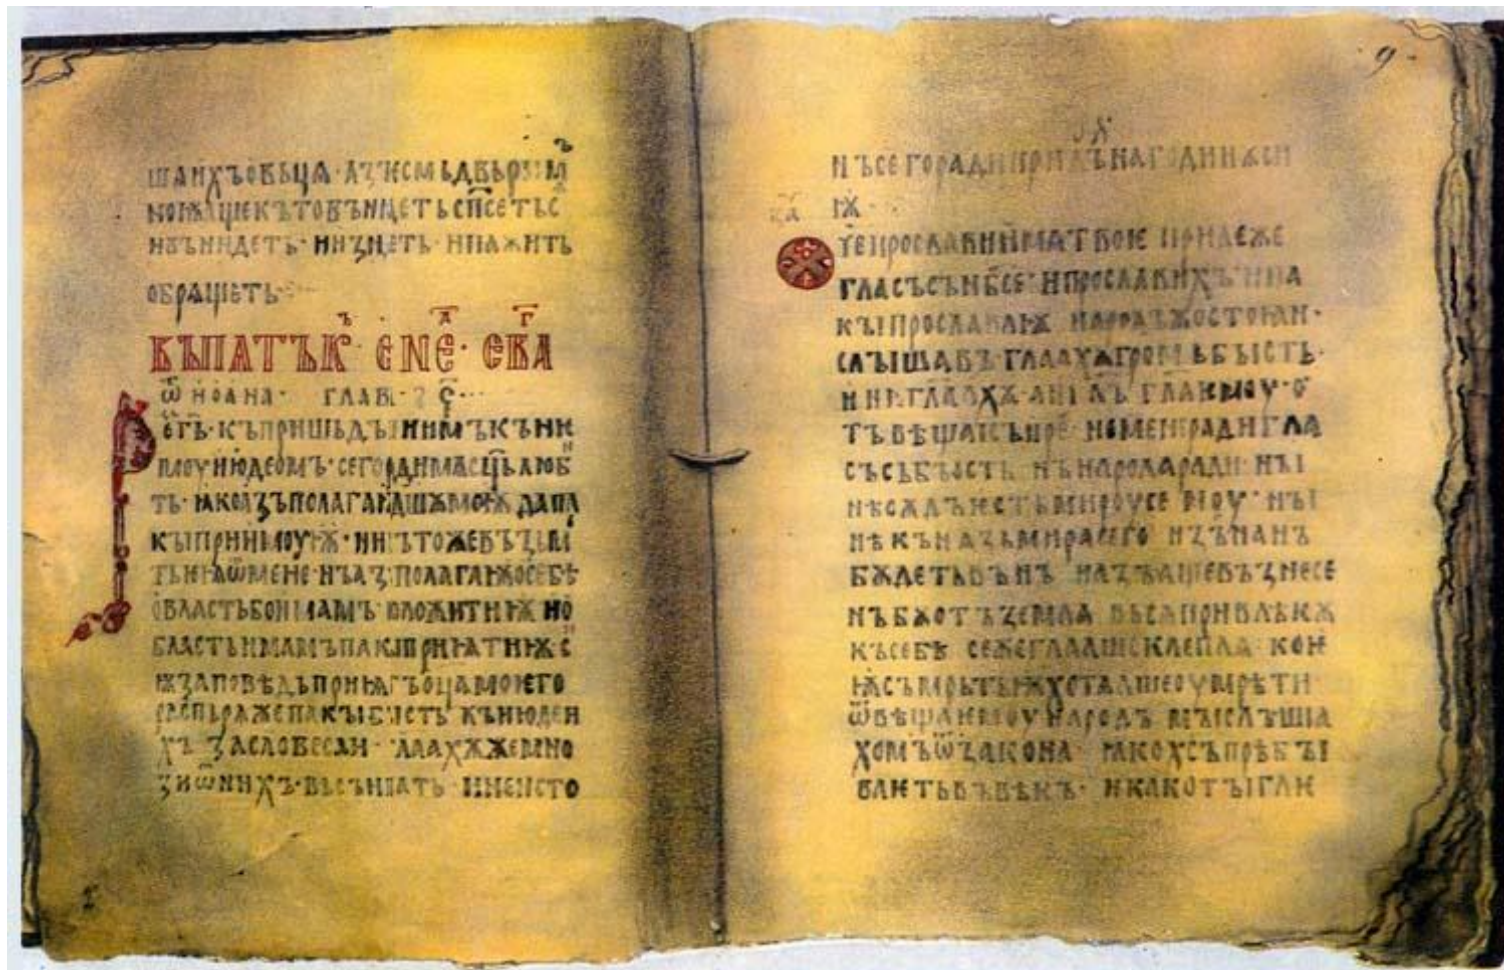 шаихъ овьца· азъ есмь двьрь· мъ
ноѭ аще къто вънидетъ сп҃сетъ с
и вънидетъ· и изідетъ· и пажить
обрѧщетъ
въ патък· е҃ не҃· ева
ѿ иоана· глав· ѕ҃·
къ пришьдъшиимъ къ не
моу июдеомъ· сего ради мѧ о҃ць люб
тъ· ꙗко азъ полагаѭ дшѫ моѭ да па
кы приимоу ѭ· никътоже възьм
тъ ѭ ѿ мене· нъ азъ полагаѭ о себѣ
область бо имамъ положити ѭ и о
бласть имамъ пакы приѩти ѭ· с
ѭ заповѣдь приѩхъ оца моего
распьрѧ же пакы бысть къ июдеи
хъ за словеса си· глаахѫ же мно
зи ѿ нихъ· бѣсъ имать и неисто
нъ сего ради придъ на годинѫ си
ѭ·
ч҃е прослави имѧ твое приде же
гласъ съ нб҃се· и прославихъ· и па
кы прославлѭ народъ же стоѩи·
слышавъ глаахѫ громъ бысть·
ини глаахѫ· анг҃лъ гл҃а емоу· о
тъвѣща іс и рече· не мене ради гла
съ сь бысть нъ народа ради· нъі
нѣ сѫдъ естъ мироу семоу· нъі
нѣ кънѧзь мира сего изгънанъ
бѫдетъ вънъ и азъ аще възнесе
нъ бѫ отъ землѧ вьсѧ привлѣкѫ
къ себѣ се же глааше клеплѧ кое
ѭ съмрьтьѭ хотѣаше оумрѣти·
ѿвѣща емоу народъ мы слꙑша
хомъ ѿ закона· ꙗко хс прѣбꙑ
ваетъ въ вѣкъ· и како тꙑ гле